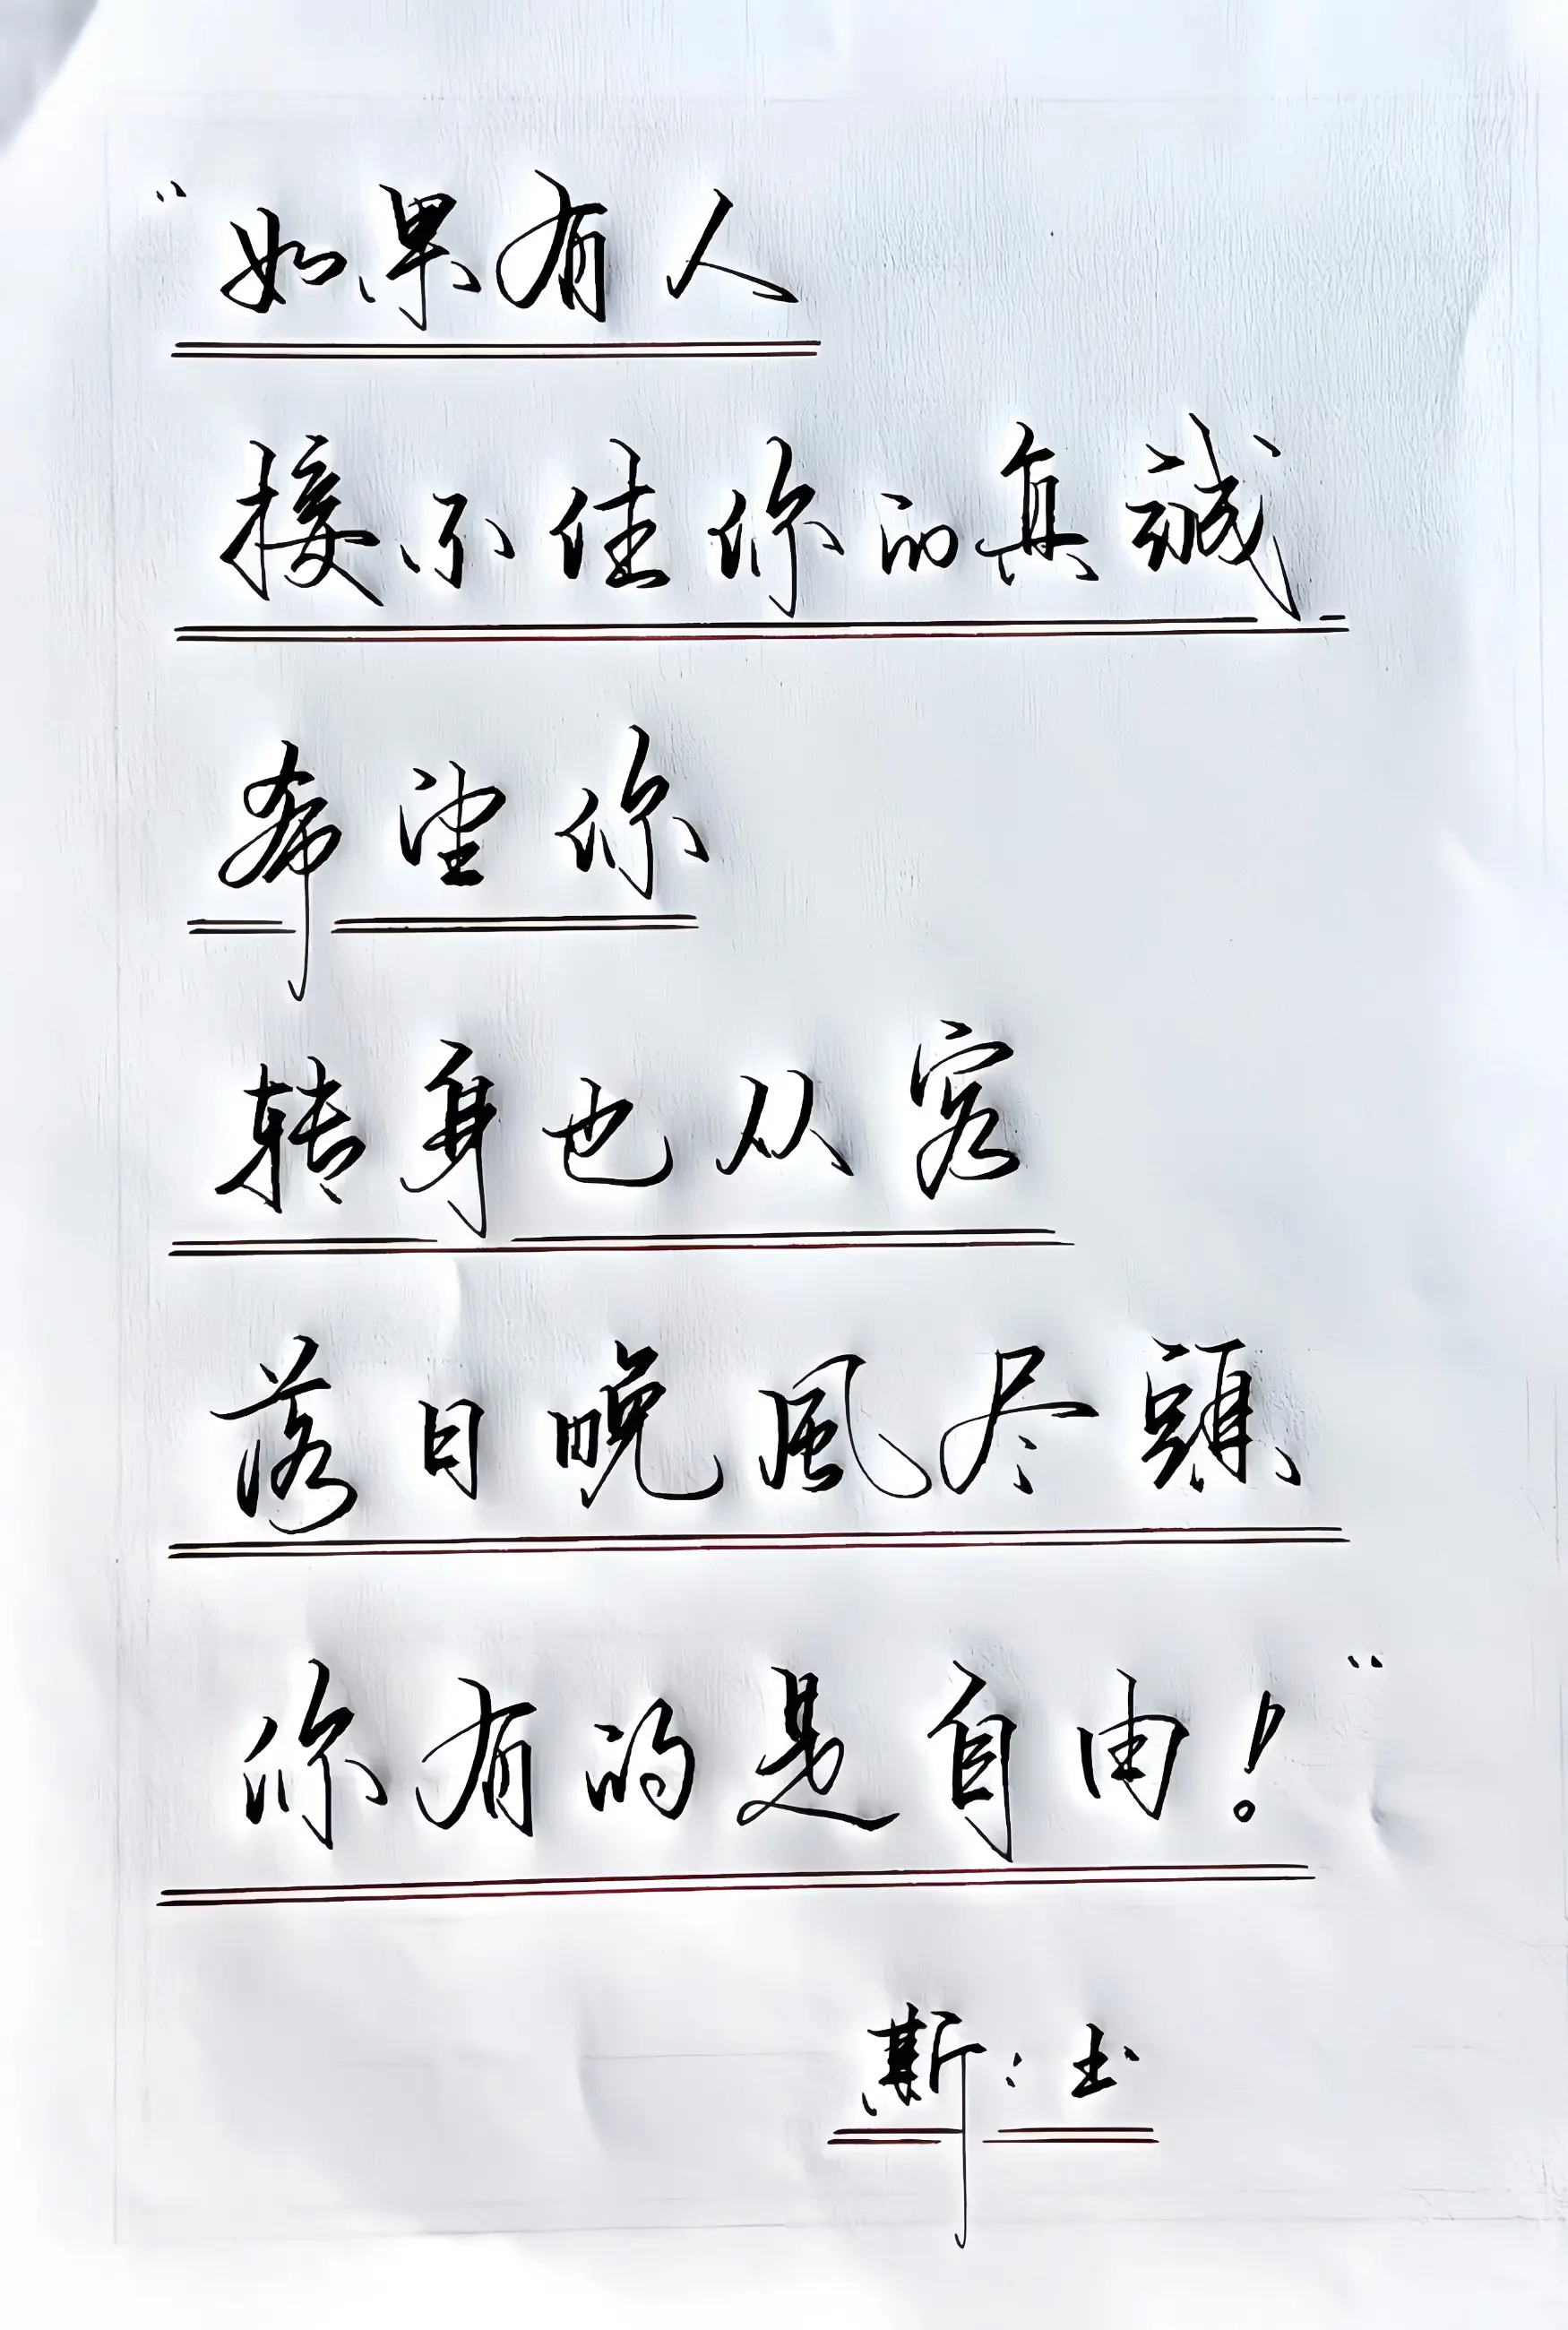 “如果有人
接不住你的真诚
希望你
转身也从容
落日晚風尽頭
你有的是自由！”
斯：玉